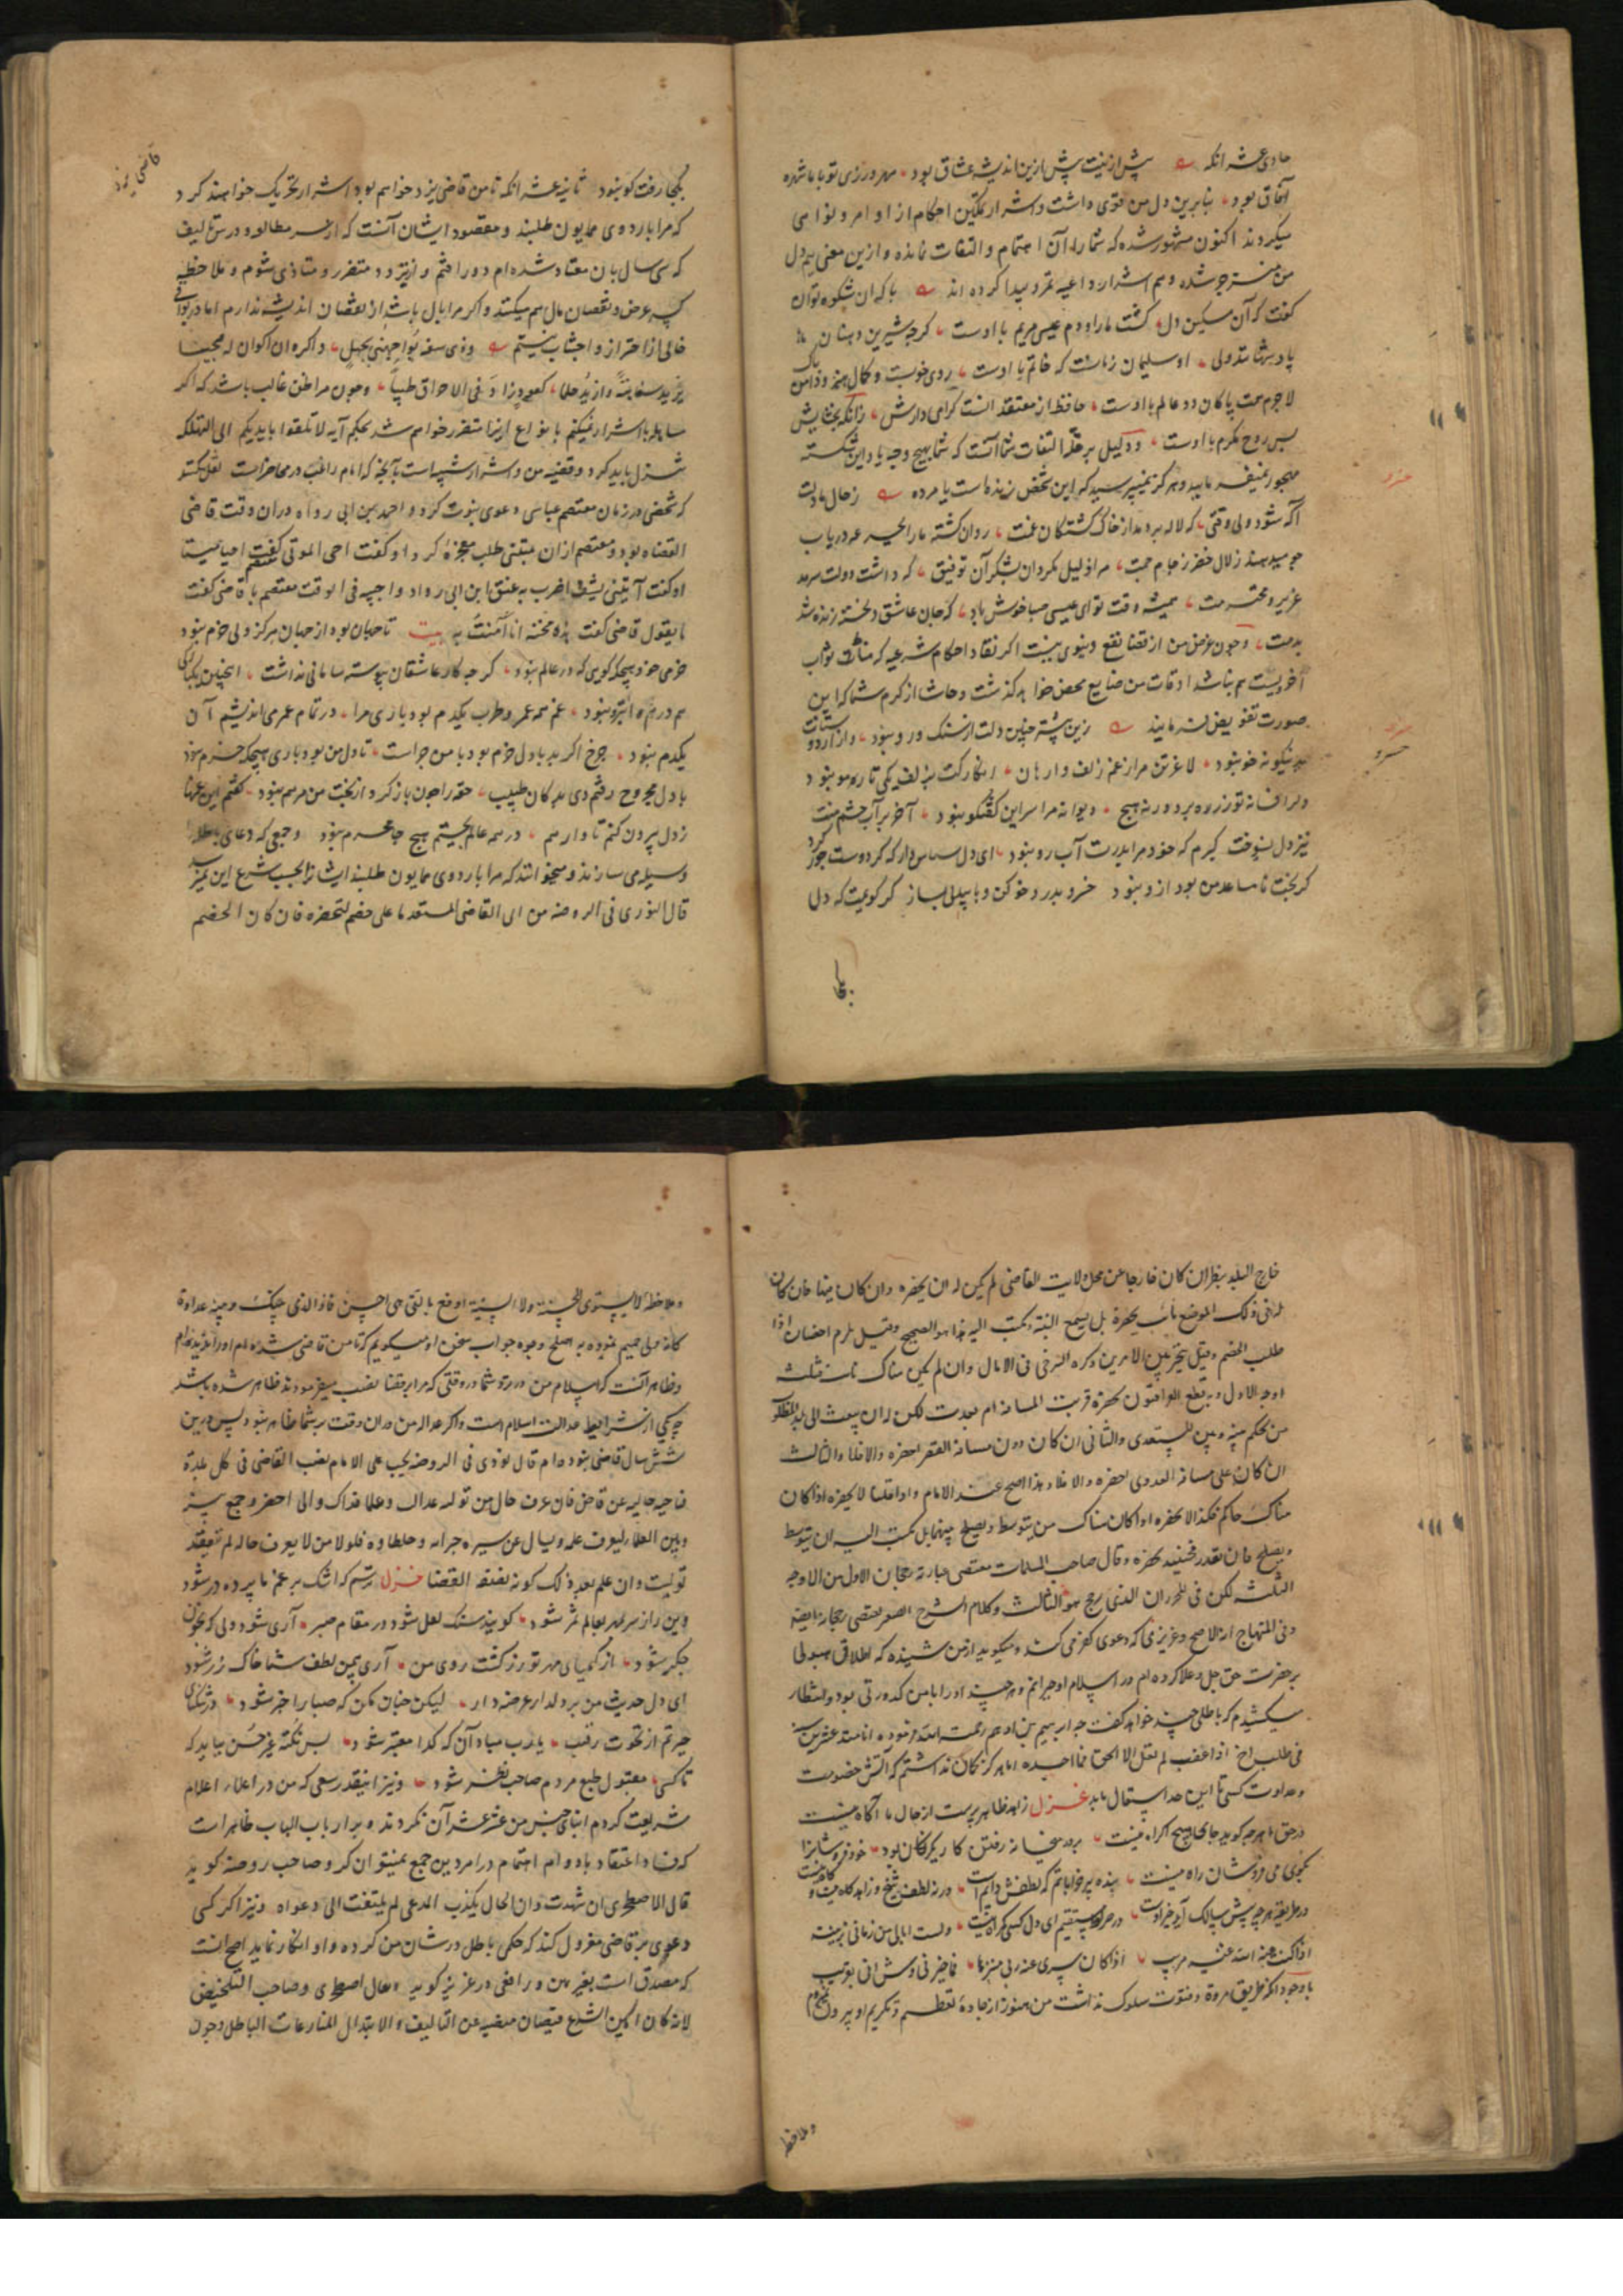 حادی عشر انکه پیش ازینت پیش ازین اندیشه عشاق بود مهرورزی تو با ما شهره
آفاق بود بنابرین دل من قوی داشت و اشرار تمکین احکام از اوامر و نواهی
میکردند اکنون مشهور شده که شما را آن اهتمام و التفات نمانده و ازین معنی هم دل
من منزجر شده و هم اشرار داعیه تمرد پیدا کرده اند با که این شکوه توان
کفت که آن سکین دل کشت ما را و دم عیسی مریم با اوست کرچه شیرین دهنان
پادشهانند ولی او سلیمان زمانست که خاتم با اوست روی خوبست و کمال هنر و دامن پاک
لاجرم همت پاکان دو عالم با اوست حافظ از معتقدانست کرامی دارش زانکه بخشایش
بس روح مکرم با اوست و دلیل بر قلّة التفات شما آنست که شما بهیچ وجه یاد این شکسته
مهجور نمیفرمایید و هرکز نمیپرسید که این شخص زنده است یا مرده ز حال ما دلت
آکه شود ولی وقتی که لاله بر دمد از خاک کشتکان غمت روان تشنه ما را بجرعه دریاب
چو میدهند زلال خضر ز جام جمت مرا ذلیل مکردان بشکر آن توفیق که داشت دولت سرمد
عزیز و محترمت همیشه وقت تو ای عیسی صبا خوش باد که جان عاشق دلخسته زنده شد
بدمت و چون غرض من از قضا نفع دنیوی نیست اکر نفاذ احکام شرعیه که مناط ثواب
آخرویست هم نباشد اوقات من ضایع محض خواهد کذشت و حاشا از کرم شما که این
صورت تفویض فرمایند زین پیشتر چنین دلت از سنک و رو نبود
نیکونه خو نبود لاغر تن مرا ز غم زلف وارهان انکار کت بزلف یکی تاره مو نبود
دلرا فسانه تو ز ره برد ورنه هیچ دیوانه مرا سر این کفتکو نبود آخر بر آب چشم منت
نیز دل نسوخت کیرم که خود مرا بدرت آب رو نبود ای دل سپاس دار که کر دوست جور کرد
کر بخت نامساعد من بود ازو نبود خسرو بدرد خو کن و با بیدلی بساز کر کویمت که دل
بکجا
بکجا رفت کو نبود ثانیه عشر انکه تا من قاضی یزد خواهم بود اشرار تحریک خواهند کرد
که مرا باردوی همایون طلبند و مقصود ایشان آنست که از سر مطالعه و درس و تالیف
که سی سال بان معتاد شده ام دور افتم و از تردد متضرر و متاذی شوم و ملاحظه
کسر عرض و نقصان مال هم میکنند و اکر مرا بال باشد از نقصان اندیشه ندارم اما در
خالی از احتراز و اجتناب نیستم وذی سفه یواجهنی بجهل و اکره ان اکون له مجیبا
یزید سفاهة وازید حلما کعود زاد فی الاحراق طیبا و چون مرا ظن غالب باشد که اکر
مساهله با اشرار میکنم بانواع ازینها متضرر خواهم شد بحکم آیه لا تلقوا بایدیکم الی التهلکه
تنزل باید کرد و قضیه من و اشرار شبیه است بآنچه که امام راغب در محاضرات نقل کند
که شخصی در زمان معتصم عباسی دعوی نبوت کرد و احمد بن ابی رواه دران وقت قاضی
القضاة بود و معتصم ازان متنبی طلب معجزه کرد او کفت احی الموتی کفت احیا میتا
او کفت آیتنی بسیف اضرب به عنق ابن ابی رواد و احییه فی الوقت معتصم با قاضی کفت
ما یقول قاضی کفت هذه محنة انا آمنت به بیت تا جهان بود از جهان هرکز دلی خرم نبود
خرمی خود هیچکه کویی که در عالم نبود کرچه کار عاشقان پیوسته سامانی نداشت
هم درهم و ابتر نبود غم همه عمر و طرب یکدم بود باری مرا در تمام عمر می اندیشم آن
یکدم نبود چرخ اکر بد با دل خرم بود با من چراست تا دل من بود باری هیچکه خرم نبود
با دل مجروح رفتم دی بدکان طبیب حقه را چون باز کرد از بخت من مرهم نبود کفتم این غمها
ز دل بیرون کنم تا وارهم در همه عالم بجستم هیچ جا محرم نبود و جمعی که دعای باطل را
وسیله می سازند و میخواهند که مرا باردوی همایون طلبند ایشانرا بحسب شرع این نمیرسد
قال النوری فی الروضه من اتی القاضی المستعدیا علی خصم لیحضره فان کان الخصم
خارج البلد ینظر ان کان خارجا عن محل ولایت القاضی لم یکن له ان یحضره وان کان فیها فان کان
له فی ذلک الموضع نائب لم یحضره بل یسمع البینة و یکتب الیه هذا هو الصحیح وقیل یلزم احضاره اذا
طلب الخصم وقیل یتخیر بین الامرین ذکره السرخسی فی الامالی وان لم یکن هناک نائب فثلثه
اوجه الاول وبه قطع العراقیون یحضره قربت المسافة ام بعدت لکن له ان یبعث الی بلد المطلوب
من یحکم بینه وبین المستعدی والثانی ان کان دون مسافة القصر احضره والا فلا والثالث
ان کان علی مسافة العدوی احضره والا فلا وهذا اصح عند الامام واذا قلنا لا یحضره اذا کان
هناک حاکم فکذا لا یحضره اذا کان هناک من یتوسط و یصلح بینهما بل یکتب الیه ان یتوسط
و یصلح فان تعذر فحینئذ یحضره وقال صاحب المهمات مقتضی عبارته رجحان الاول من الاوجه
الثلثه لکن فی المحرر ان الذی رجح هو الثالث وکلام الشرح الصغیر یقتضی رجحانه ایضا
وفی المنهاج انه الاصح و عزیزی که دعوی کفر می کند و میکوید از من شنیده که اطلاق هیولی
بر حضرت حق جل و علا کرده ام در اسلام او حیرانم و هرچند او را با من کدورتی بود و انتظار
میکشیدم که باطلی چند خواهد کفت
اما هرکز کمان نداشتم که آتش خصومت
و عداوت کسی تا این حد اشتعال یابد غزل زاهد ظاهر پرست از حال ما آکاه نیست
در حق ما هرچه کوید جای هیچ اکراه نیست بر در میخانه رفتن کار یکرنکان بود خود فروشانرا
بکوی می فروشان راه نیست بنده پیر خراباتم که لطفش دایم است ورنه لطف شیخ و زاهد کاه هست و کاه نیست
در طریقت هرچه پیش سالک آید خیر اوست در صراط مستقیم ای دل کسی کمراه نیست ولست ابالی من زمانی بریبة
اذا کنت عند الله غیر مریب اذا کان سری عند ربی منزها فما ضرنی واش اتی بغریب
با وجود انکه طریق مروة و فتوت سلوک نداشت من هنوز از جاده تعظیم و تکریم او بیرون نمیروم
و ملاحظه
و ملاحظه لا یستوی الحسنة ولا السیئة ادفع بالتی هی احسن فاذا الذی بینک و بینه عداوة
کانه ولی حمیم نموده به اصلح وجوه جواب سخن او میکویم که تا من قاضی شده ام او را ندیده ام
و ظاهر آنست که اسلام من در نزد شما در وقتی که مرا بر قضا نصب میفرمودند ظاهر شده باشد
چه یکی از شرایط عدالت اسلام است و اکر عدالة من دران وقت بر شما ظاهر نبود پس درین
شش سال قاضی نبوده ام قال نووی فی الروضه یجب علی الامام نصب القاضی فی کل بلدة
و ناحیه خالیه عن قاض فان عرف حال من تولیه عدالة و علما فذاک والا احضره و جمع بینه
و بین العلماء لیعرف علمه و یسال عن سیره جیرانه و خلطاؤه فلو ولی من لا یعرف حاله لم تنعقد
تولیت وان علم بعد ذلک کونه بصفة القضا غزل ترسم که اشک بر غم ما پرده در شود
وین راز سر بمهر بعالم سمر شود کویند سنک لعل شود در مقام صبر آری شود ولی که بخون
جکر شود از کیمیای مهر تو زر کشت روی من آری بیمن لطف شما خاک زر شود
ای دل حدیث من بر دلدار عرضه دار لیکن چنان مکن که صبا را خبر شود در تنکنای
حیرتم از نخوت رقیب یا رب مباد آن که کدا معتبر شود بس نکته غیر حسن بباید که
تا کسی مقبول طبع مردم صاحب نظر شود و نیز اینقدر سعی که من در اعلاء اعلام
شریعت کردم ابنای جنس من عشر عشر آن نکردند و بر ارباب الباب ظاهر است
که فساد اعتقاد با دوام اهتمام در امر دین جمع نمیتوان کرد و صاحب روضه کوید
قال الاصطخری ان شهدت وان الحال یکذب المدعی لم یلتفت الی دعواه و نیز اکر کسی
دعوی بر قاضی معزول کند که حکمی باطل در شان من کرده و او انکار نماید اصح انست
که مصدق است بغیر یمین و رافعی در عزیز کوید وقال اصطخری وصاحب التلخیص
لانه کان امین الشرع